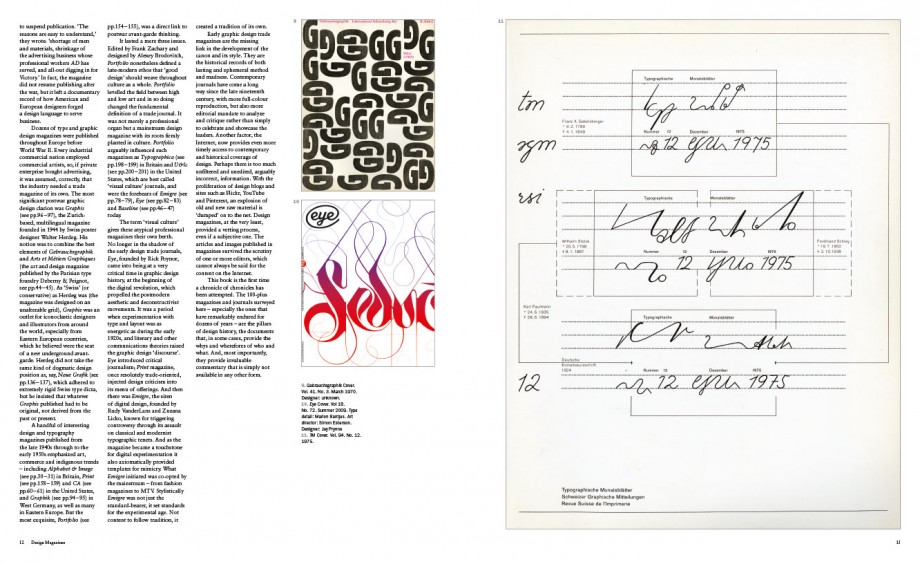 to suspend publication. 'The
reasons are easy to understand,'
they wrote: 'shortage of men
and materials, shrinkage of
the advertising business whose
professional workers AD has
served, and all-out digging in for
Victory.' In fact, the magazine
did not resume publishing after
the war, but it left a documentary
record of how American and
European designers forged
a design language to serve
business.
Dozens of type and graphic
design magazines were published
throughout Europe before
World War II. Every industrial
commercial nation employed
commercial artists, so, if private
enterprise bought advertising,
it was assumed, correctly, that
the industry needed a trade
magazine of its own. The most
significant postwar graphic
design clarion was Graphis
(see pp.96–97), the Zurich-
based, multilingual magazine
founded in 1944 by Swiss poster
designer Walter Herdeg. His
notion was to combine the best
elements of Gebrauchsgraphik
and Arts et Métiers Graphiques
(the art and design magazine
published by the Parisian type
foundry Deberny & Peignot,
see pp.44–45). As 'Swiss' (or
conservative) as Herdeg was (the
magazine was designed on an
unalterable grid), Graphis was an
outlet for iconoclastic designers
and illustrators from around
the world, especially from
Eastern European countries,
which he believed were the seat
of a new underground avant-
garde. Herdeg did not take the
same kind of dogmatic design
position as, say, Neue Grafik (see
pp.136–137), which adhered to
extremely rigid Swiss type dicta,
but he insisted that whatever
Graphis published had to be
original, not derived from the
past or present.
A handful of interesting
design and typography
magazines published from
the late 1940s through to the
early 1950s emphasized art,
commerce and indigenous trends
– including Alphabet & Image
(see pp.30–31) in Britain, Print
(see pp.158–159) and CA (see
pp.60–61) in the United States,
and Graphik (see pp.94–95) in
West Germany, as well as many
in Eastern Europe. But the
most exquisite, Portfolio (see
pp.154–155), was a direct link to
postwar avant-garde thinking.
It lasted a mere three issues.
Edited by Frank Zachary and
designed by Alexey Brodovitch,
Portfolio nonetheless defined a
late-modern ethos that 'good
design' should weave throughout
culture as a whole. Portfolio
levelled the field between high
and low art and in so doing
changed the fundamental
definition of a trade journal. It
was not merely a professional
organ but a mainstream design
magazine with its roots firmly
planted in culture. Portfolio
arguably influenced such
magazines as Typographica (see
pp.198–199) in Britain and U&lc
(see pp.200–201) in the United
States, which are best called
'visual culture' journals, and
were the forebears of Emigre (see
pp.78–79), Eye (see pp.82–83)
and Baseline (see pp.46–47)
today.
The term 'visual culture'
gives these atypical professional
magazines their own berth.
No longer in the shadow of
the early design trade journals,
Eye, founded by Rick Poynor,
came into being at a very
critical time in graphic design
history, at the beginning of
the digital revolution, which
propelled the postmodern
aesthetic and deconstructivist
movements. It was a period
when experimentation with
type and layout was as
energetic as during the early
1920s, and literary and other
communications theories raised
the graphic design 'discourse'.
Eye introduced critical
journalism; Print magazine,
once resolutely trade-oriented,
injected design criticism into
its menu of offerings. And then
there was Emigre, the siren
of digital design, founded by
Rudy VanderLans and Zuzana
Licko, known for triggering
controversy through its assault
on classical and modernist
typographic tenets. And as the
magazine became a touchstone
for digital experimentation it
also axiomatically provided
templates for mimicry. What
Emigre initiated was co-opted by
the mainstream – from fashion
magazines to MTV. Stylistically
Emigre was not just the
standard-bearer, it set standards
for the experimental age. Not
content to follow tradition, it
created a tradition of its own.
Early graphic design trade
magazines are the missing
link in the development of the
canon and its style. They are
the historical records of both
lasting and ephemeral method
and madness. Contemporary
journals have come a long
way since the late nineteenth
century, with more full-colour
reproduction, but also more
editorial mandate to analyse
and critique rather than simply
to celebrate and showcase the
leaders. Another factor, the
Internet, now provides even more
timely access to contemporary
and historical coverage of
design. Perhaps there is too much
unfiltered and unedited, arguably
incorrect, information. With the
proliferation of design blogs and
sites such as Flickr, YouTube
and Pinterest, an explosion of
old and new raw material is
'dumped' on to the net. Design
magazines, at the very least,
provided a vetting process,
even if a subjective one. The
articles and images published in
magazines survived the scrutiny
of one or more editors, which
cannot always be said for the
content on the Internet.
This book is the first time
a chronicle of chronicles has
been attempted. The 100-plus
magazines and journals surveyed
here – especially the ones that
have remarkably endured for
dozens of years – are the pillars
of design history, the documents
that, in some cases, provide the
whys and wherefores of who and
what. And, most importantly,
they provide invaluable
commentary that is simply not
available in any other form.
9
Gebrauchsgraphik International Advertising Art
10
eye
9. Gebrauchsgraphik Cover.
Vol. 41, No. 3. March 1970.
Designer: unknown.
10. Eye Cover. Vol 18,
No. 72. Summer 2009. Type
detail: Marian Bantjes. Art
director: Simon Esterson.
Designer: Jay Prynne
11. TM Cover. Vol. 94, No. 12.
1975.
11
tm
Typographische Monatsblätter
Nummer 12 Dezember 1975
12 1975
sgm
rsi
Typographische Monatsblätter
Nummer 12 Dezember 1975
12 1975
Typographische Monatsblätter
Nummer 12 Dezember 1975
12
12 1975
Typographische Monatsblätter
Schweizer Graphische Mitteilungen
Revue Suisse de l'Imprimerie
12 Design Magazines
13